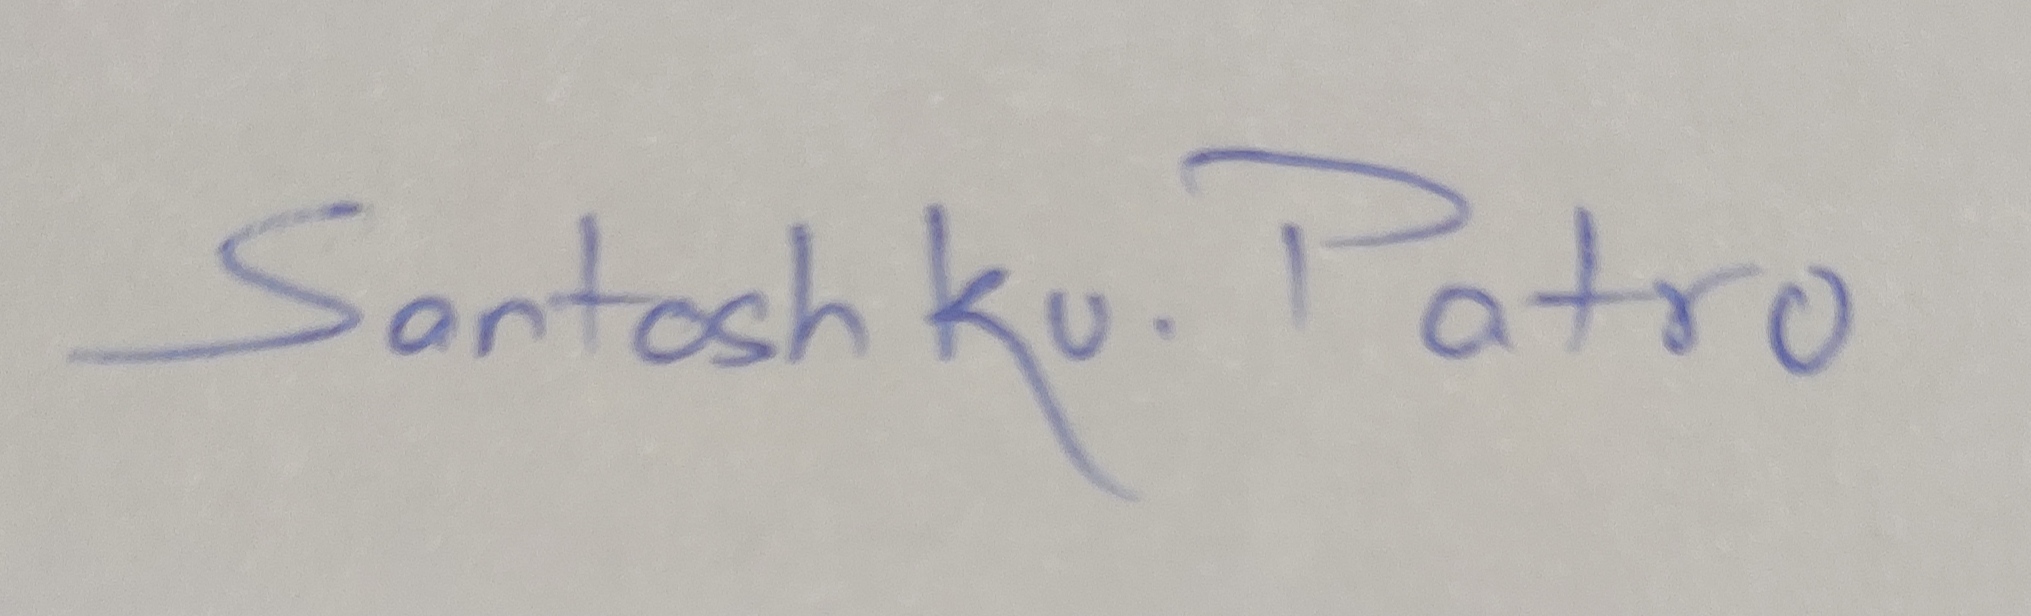 Santosh Ku. Patro